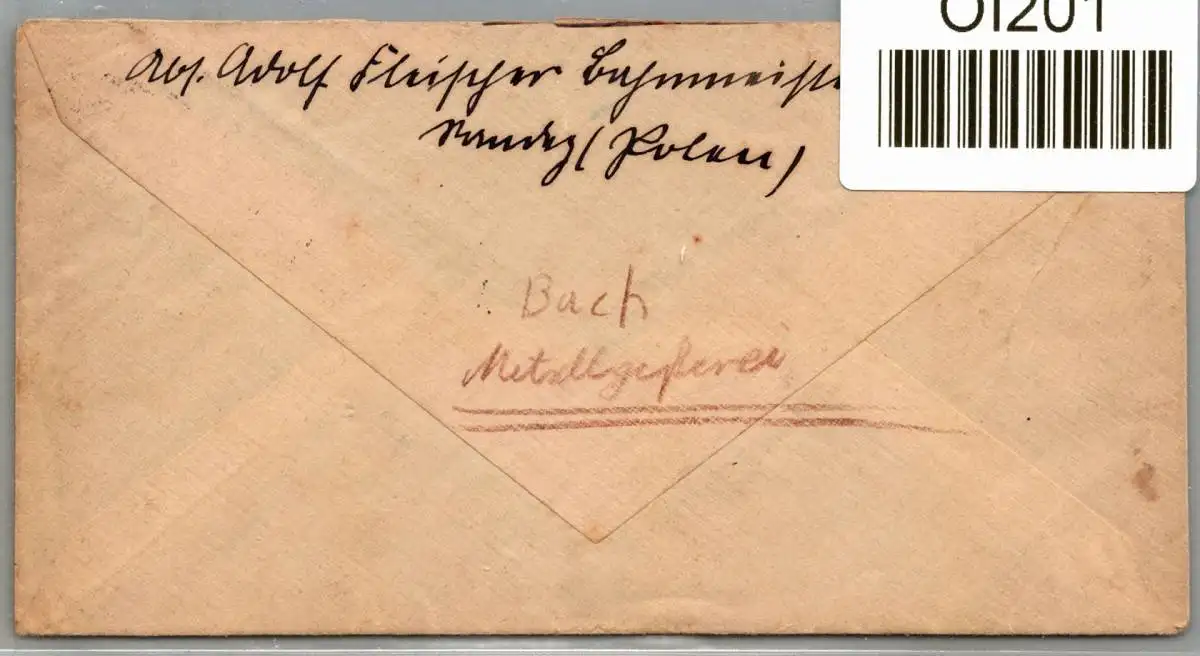 OI201
Abs. Adolf Fleischer Bahnmeiste
(Polen)
Bach
Metallgißerei